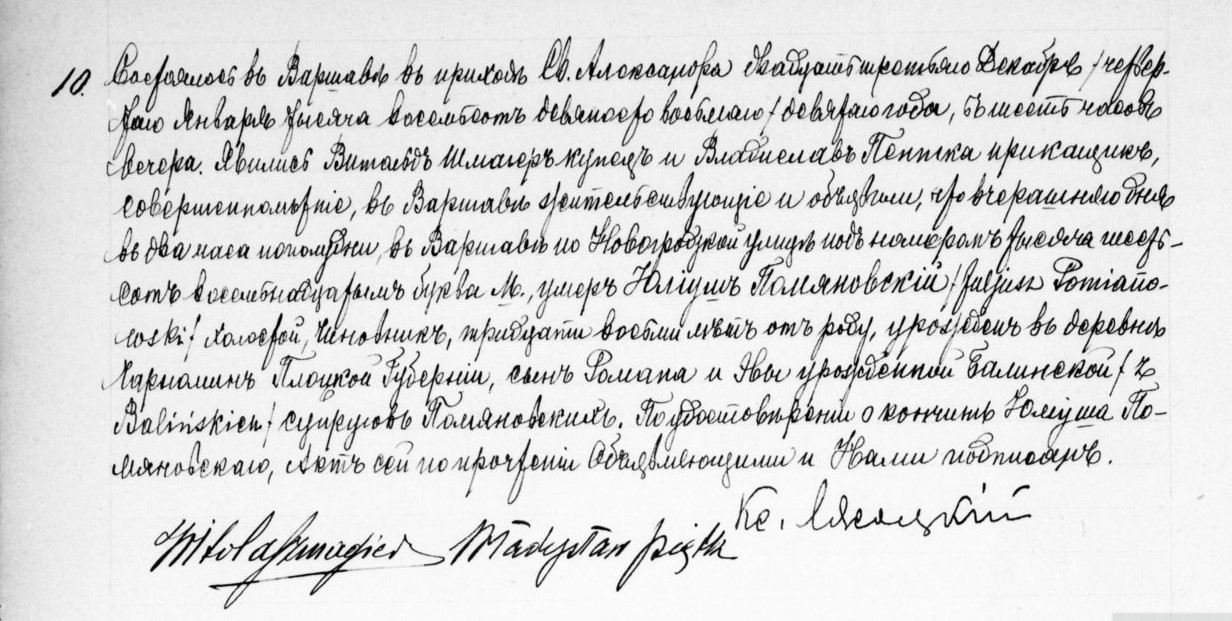 10. Состоялось въ Варшавѣ въ приходѣ Св. Александра двадцать третьяго Декабря / четвер-
таго Января тысяча восемьсотъ девяносто восьмаго / девятаго года, въ шесть часовъ
вечера. Явились Витольдъ Шмагеръ купецъ и Владиславъ Пентка прикащикъ,
совершеннолѣтніе, въ Варшавѣ жительствующіе и объявили, что вчерашняго дня
въ два часа пополудни, въ Варшавѣ по Новогродзкой улицѣ подъ номеромъ тысяча шесть-
сотъ восемьнадцатымъ буква М., умеръ Юліушъ Помяновскій / Juljusz Pomiano-
wski / холостой, Чиновникъ, тридцати восьми лѣтъ отъ роду, урожденъ въ деревнѣ
Плоцкой Губерніи, сынъ Романа и Эвы урожденной Балинской / z
Balińskich / супруговъ Помяновскихъ. По удостовѣреніи о кончинѣ Юліуша По-
мяновскаго, Актъ сей по прочтеніи Объявляющими и Нами подписанъ.
Кс.
Witold Szmagier Władysław Piętka